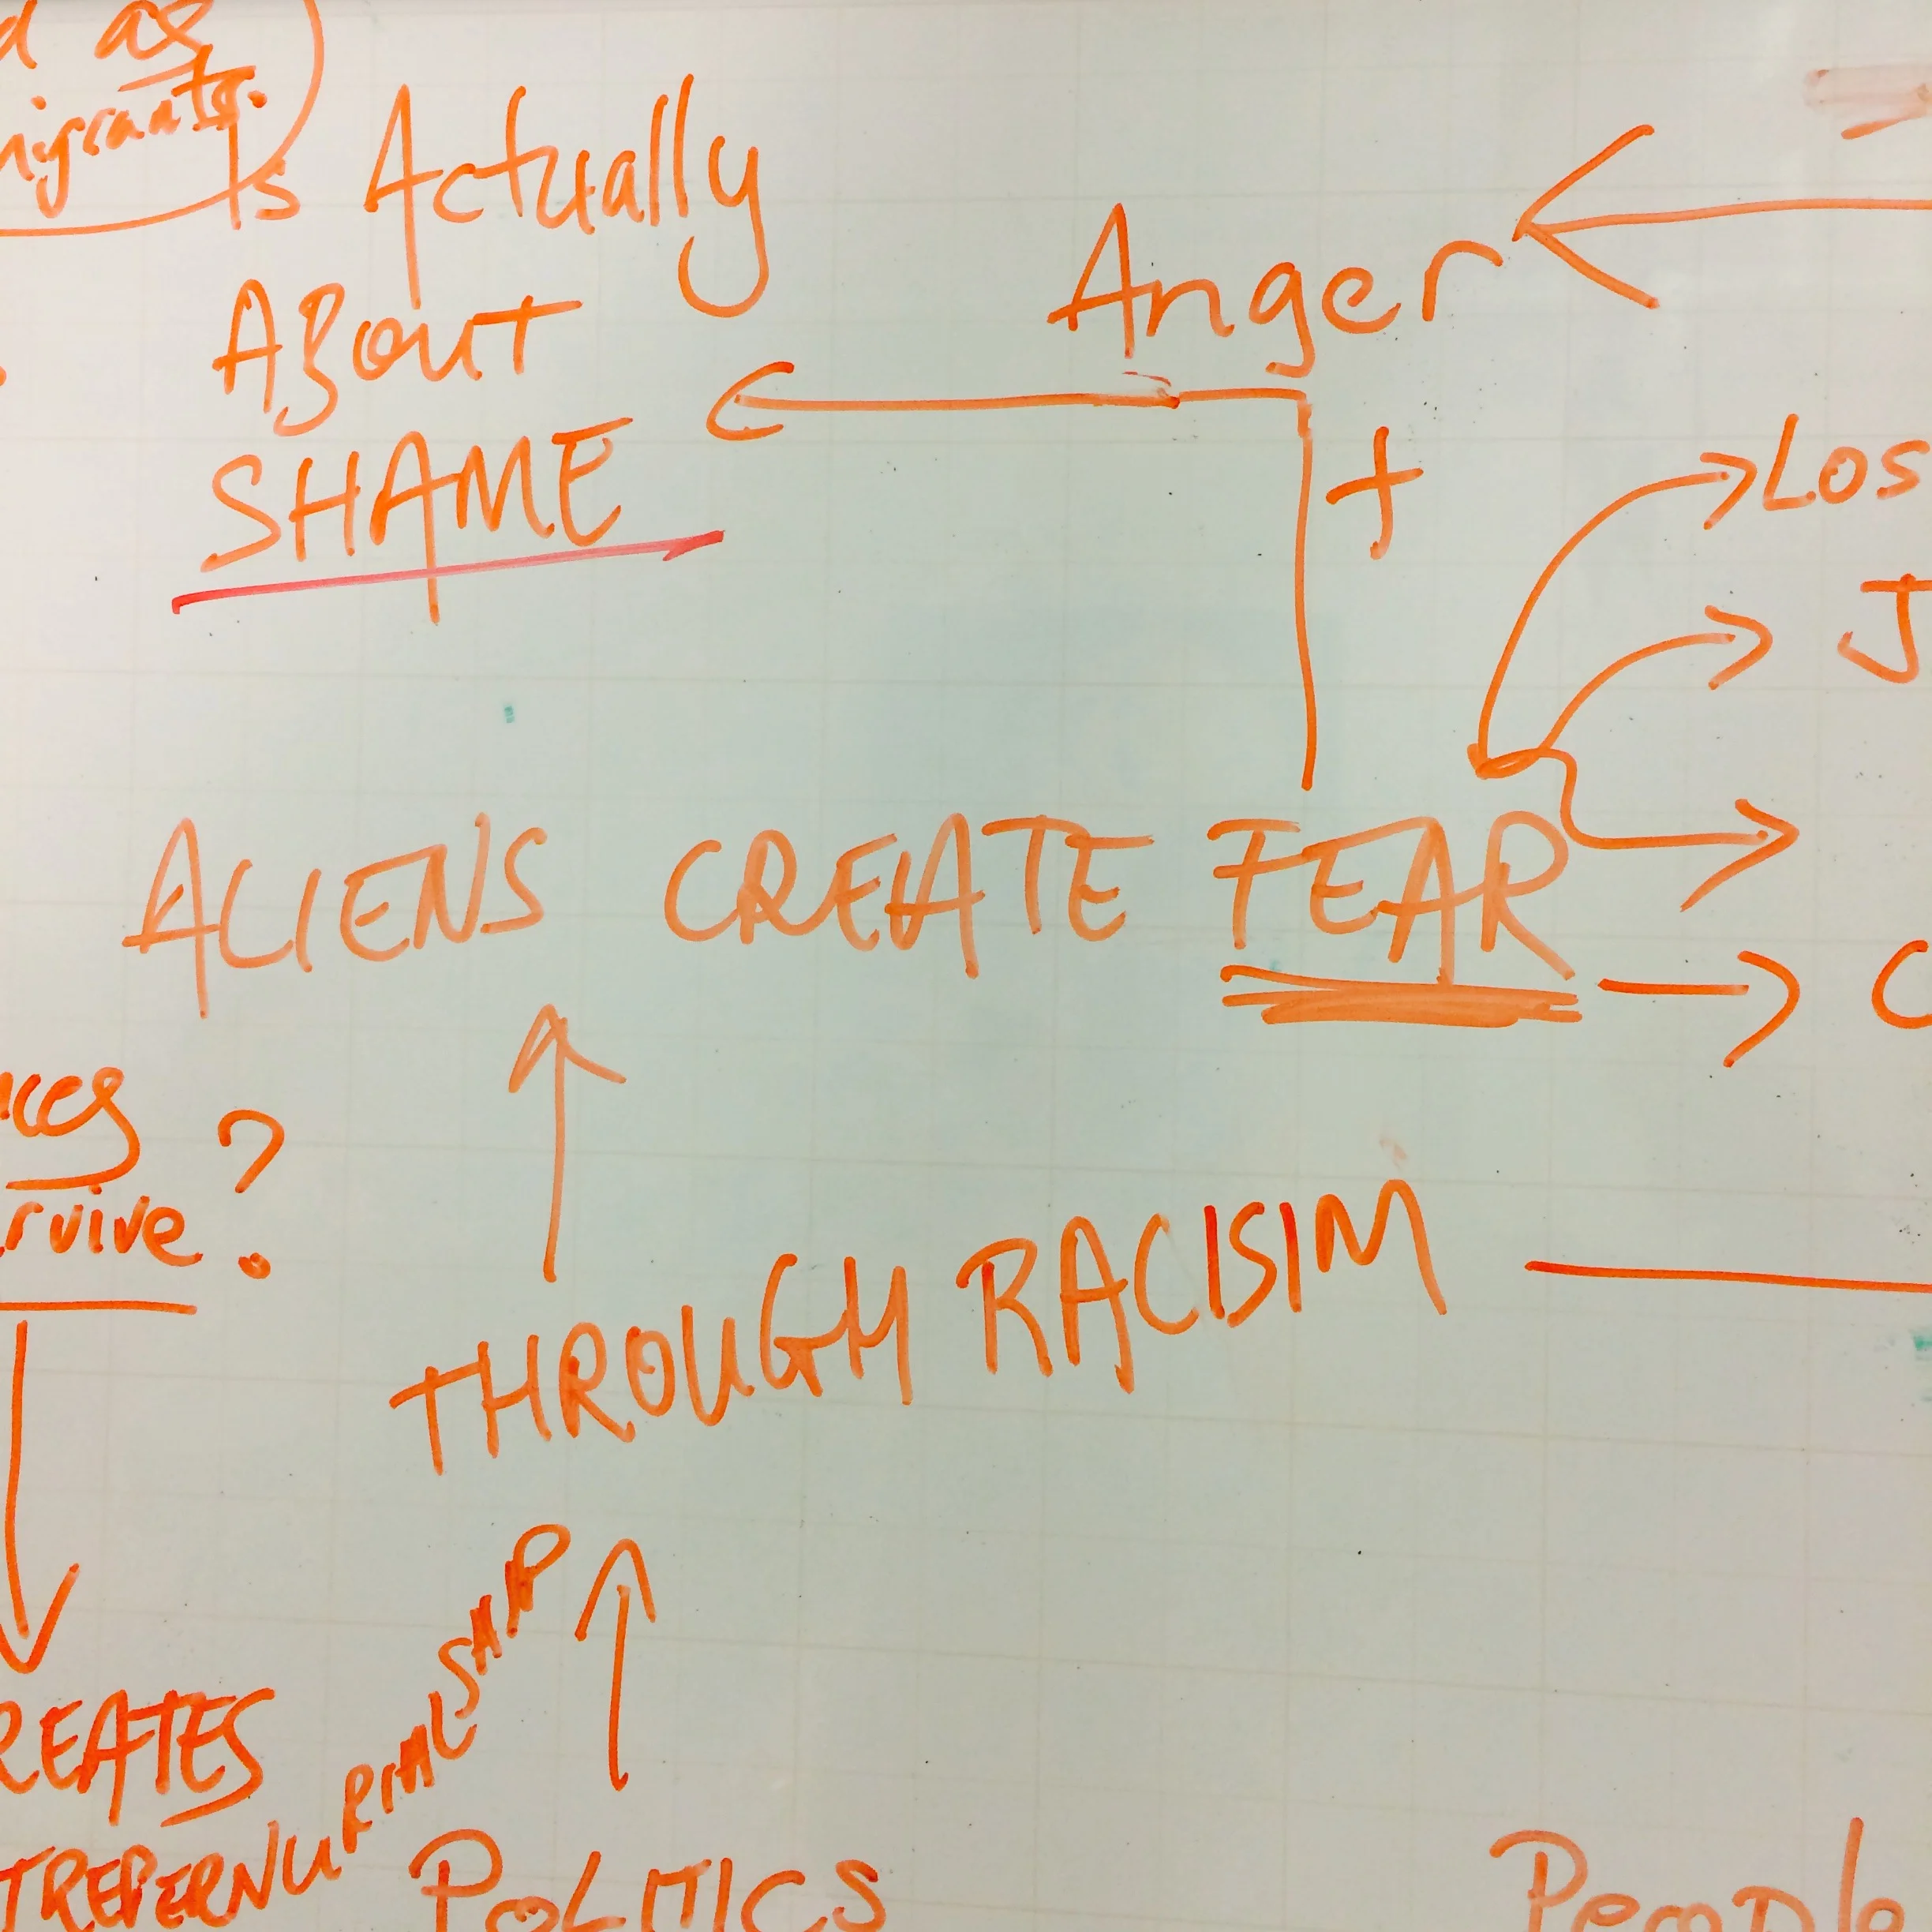 as
Is Actually
ABOUT
SHAME
Anger
+
LOS
J
ALIENS CREATE FEAR
C
?
rvive
THROUGH RACISIM
REATES
TREPERNURIALSHIP
POLITICS
People